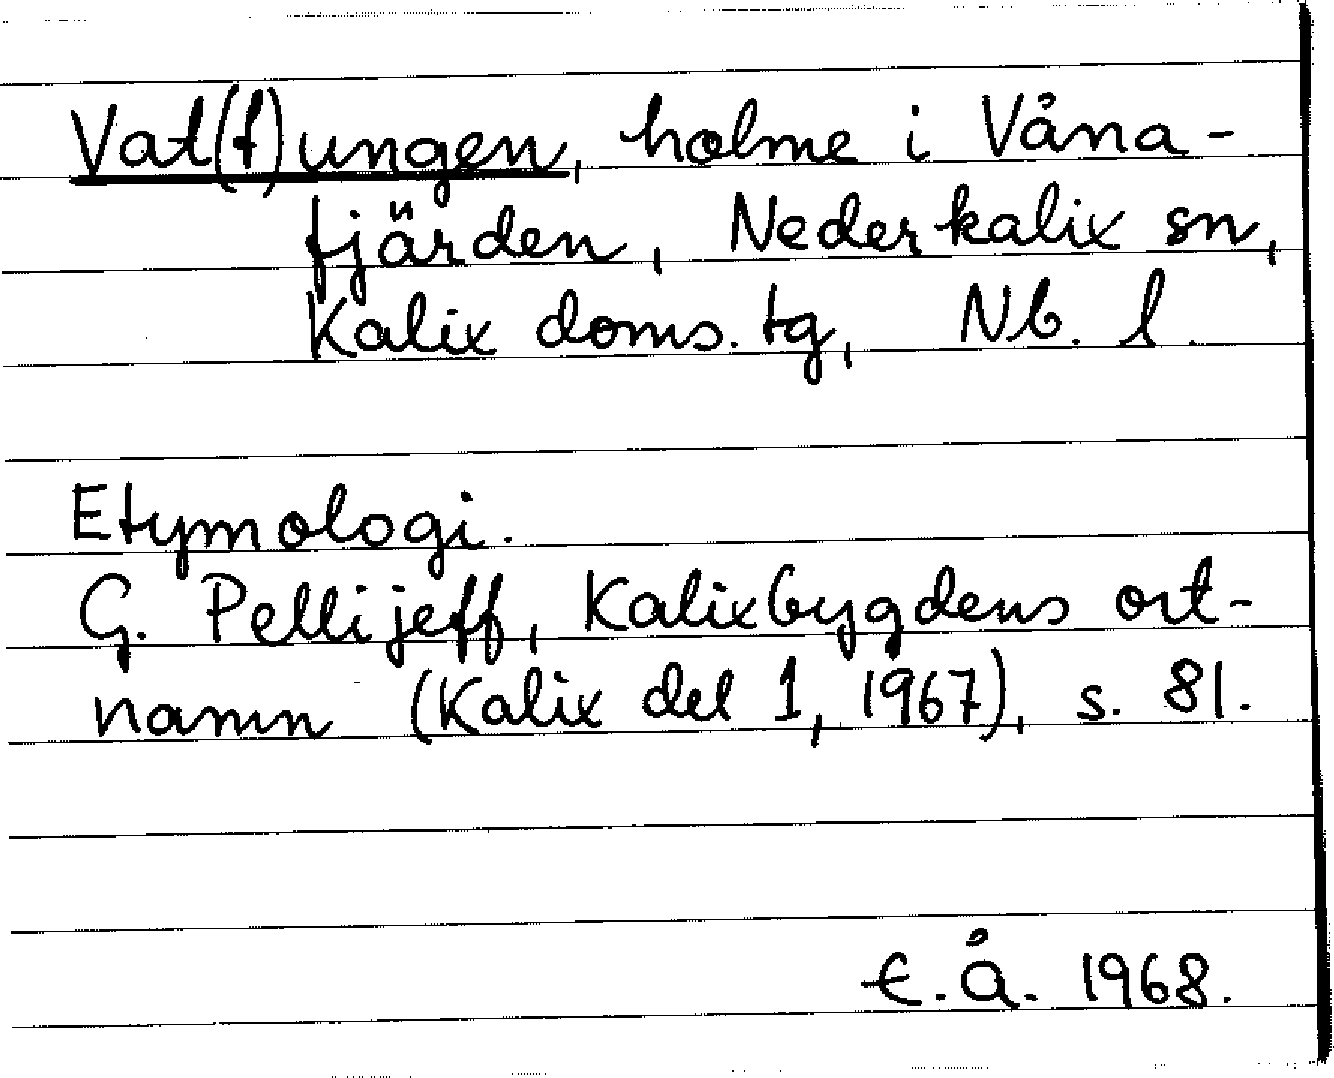 Vat(t)ungen, holme i Våna-
fjärden, Nederkalix sn,
Kalix doms. tg, Nb. l.
Etymologi.
G. Pellijeff, Kalixbygdens ort-
namn (Kalix del 1, 1967), s. 81.
E.Å. 1968.